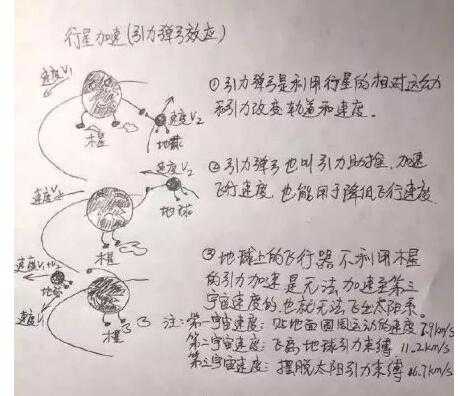 行星加速(引力弹弓效应)
速度V1
速度V2
木星
地球
①引力弹弓是利用行星的相对运动
和引力改变轨道和速度。
速度V2
②引力弹弓也叫引力助推,加速
飞行速度,也能用于降低飞行速度
地球
木星
③地球上的飞行器不利用木星
的引力加速是无法加速至第三
宇宙速度的,也就无法飞出太阳系。
地球
速度V1
木星
注:第一宇宙速度:贴地面圆周运动的速度7.9km/s
第二宇宙速度:飞离地球引力束缚 11.2km/s
第三宇宙速度:摆脱太阳引力束缚 16.7km/s